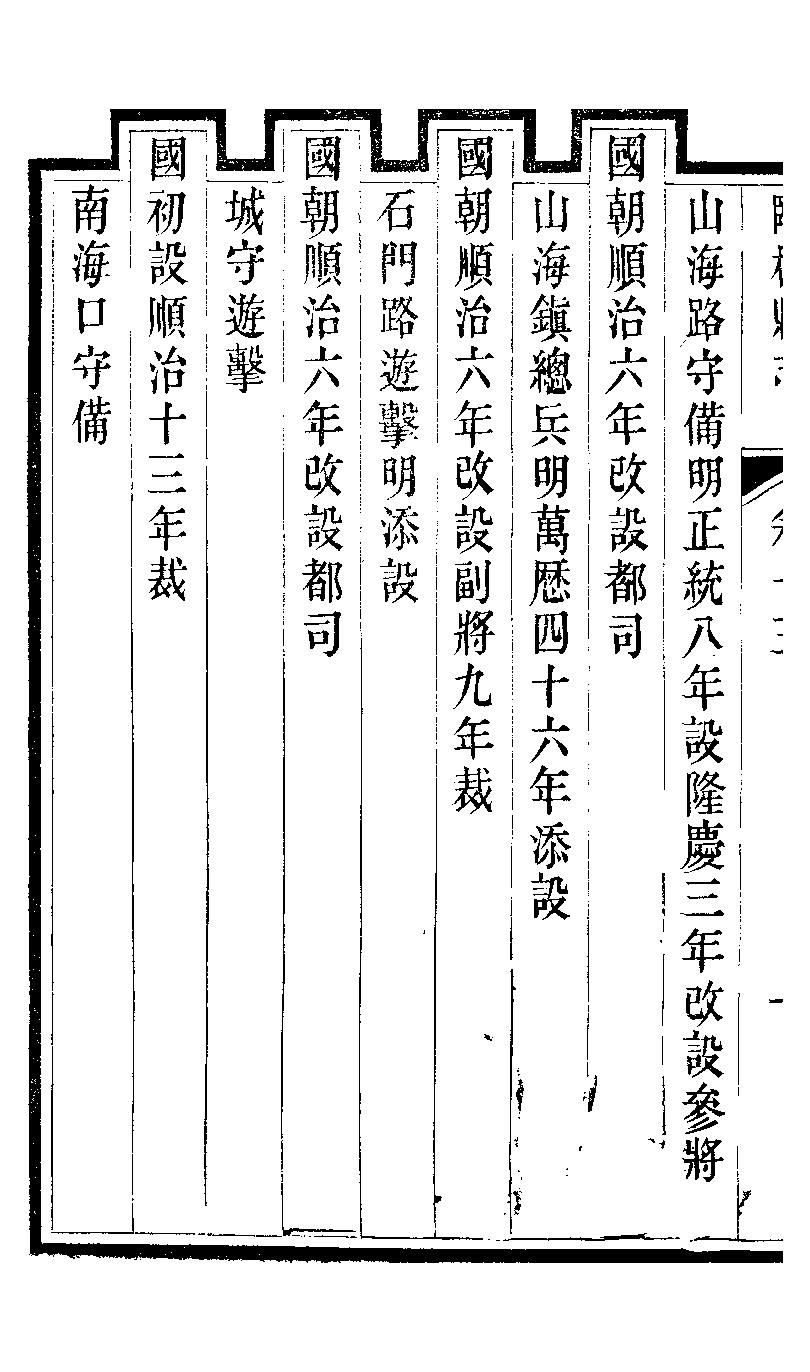 山海路守備明正統八年設隆慶三年改設參將
國朝順治六年改設都司
山海鎮總兵明萬歷四十六年添設
國朝順治六年改設副將九年裁
石門路遊擊明添設
國朝順治六年改設都司
城守遊擊
國初設順治十三年裁
南海口守備